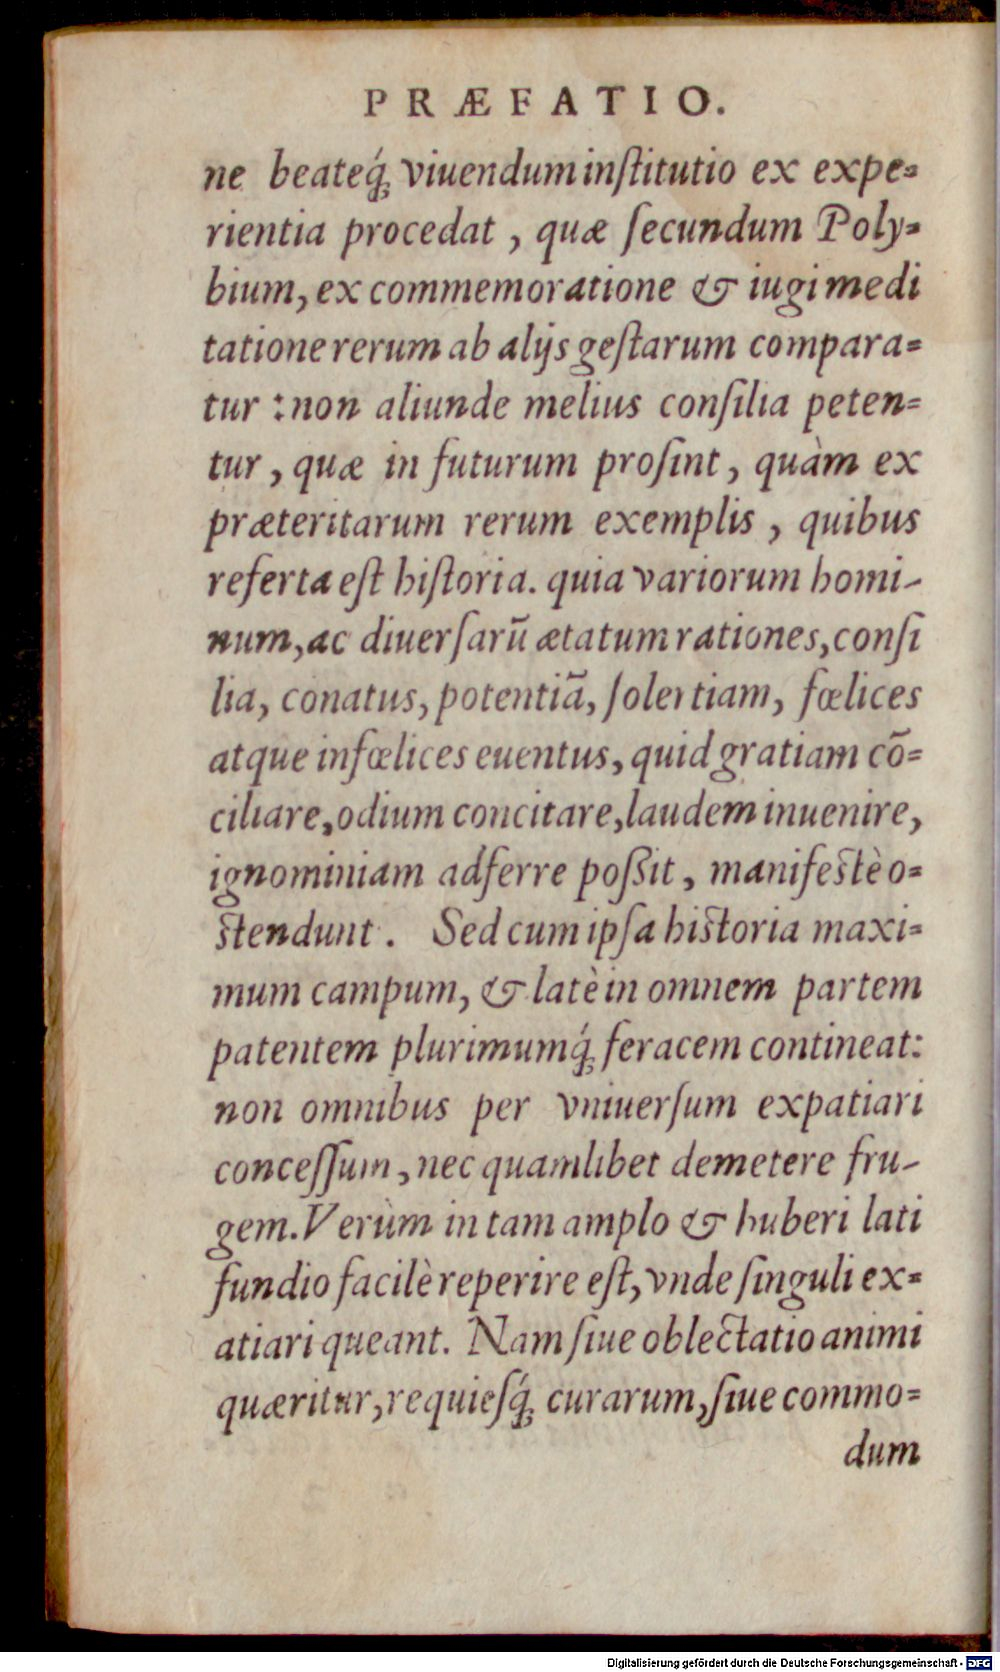 PRÆFATIO.
ne beateq́; viuendum inſtitutio ex expe=
rientia procedat, quæ ſecundum Poly=
bium, ex commemoratione & iugi medi
tatione rerum ab alijs geſtarum compara=
tur: non aliunde melius conſilia peten=
tur, quæ in futurum proſint, quàm ex
præteritarum rerum exemplis, quibus
referta eſt hiſtoria. quia variorum homi-
num, ac diuerſarū ætatum rationes, conſi
lia, conatus, potentiā, ſolertiam, fœlices
atque infœlices euentus, quid gratiam cō=
ciliare, odium concitare, laudem inuenire,
ignominiam adferre poßit, manifeſtè o=
ſtendunt. Sed cum ipſa hiſtoria maxi=
mum campum, & latè in omnem partem
patentem plurimumq́; feracem contineat:
non omnibus per vniuerſum expatiari
conceſſum, nec quamlibet demetere fru-
gem. Verùm in tam amplo & huberi lati
fundio facilè reperire eſt, vnde ſinguli ex=
atiari queant. Nam ſiue oblectatio animi
quæritur, requieſq́; curarum, ſiue commo=
dum
Digitalisierung gefördert durch die Deutsche Forschungsgemeinschaft - DFG